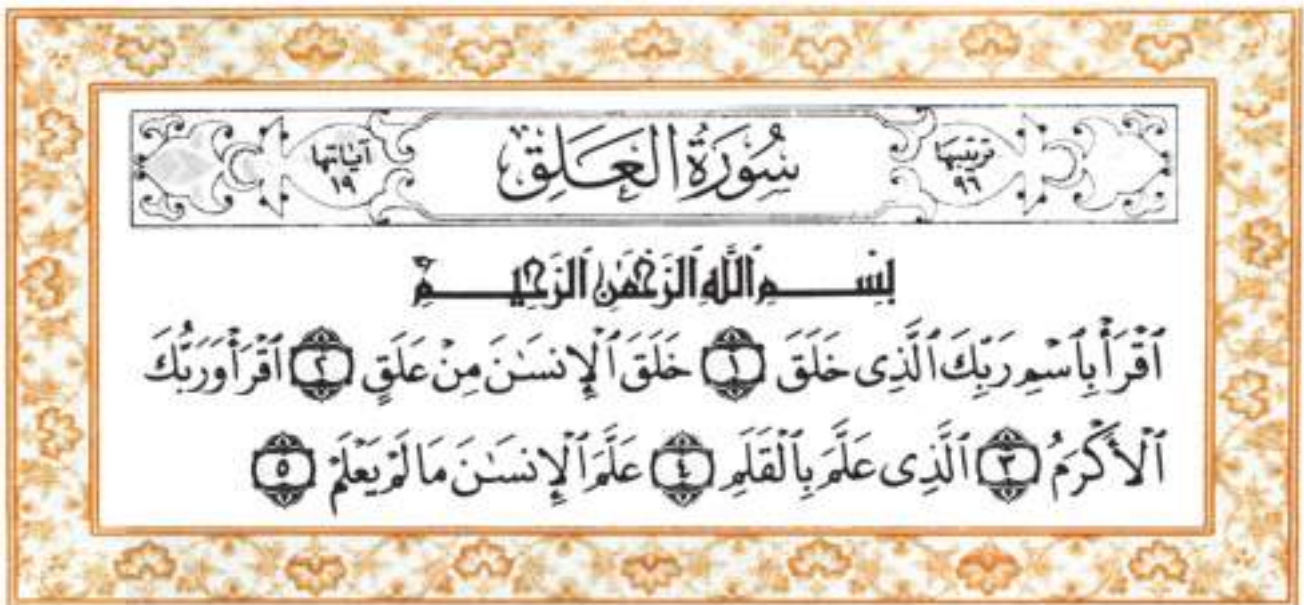 ترتيبها ٩٦ سُورَةُ العَلَقِ آياتها ١٩
بِسْمِ ٱللَّهِ ٱلرَّحْمَٰنِ ٱلرَّحِيمِ
ٱقْرَأْ بِٱسْمِ رَبِّكَ ٱلَّذِى خَلَقَ ١ خَلَقَ ٱلْإِنسَٰنَ مِنْ عَلَقٍ ٢ ٱقْرَأْ وَرَبُّكَ
ٱلْأَكْرَمُ ٣ ٱلَّذِى عَلَّمَ بِٱلْقَلَمِ ٤ عَلَّمَ ٱلْإِنسَٰنَ مَا لَمْ يَعْلَمْ ٥